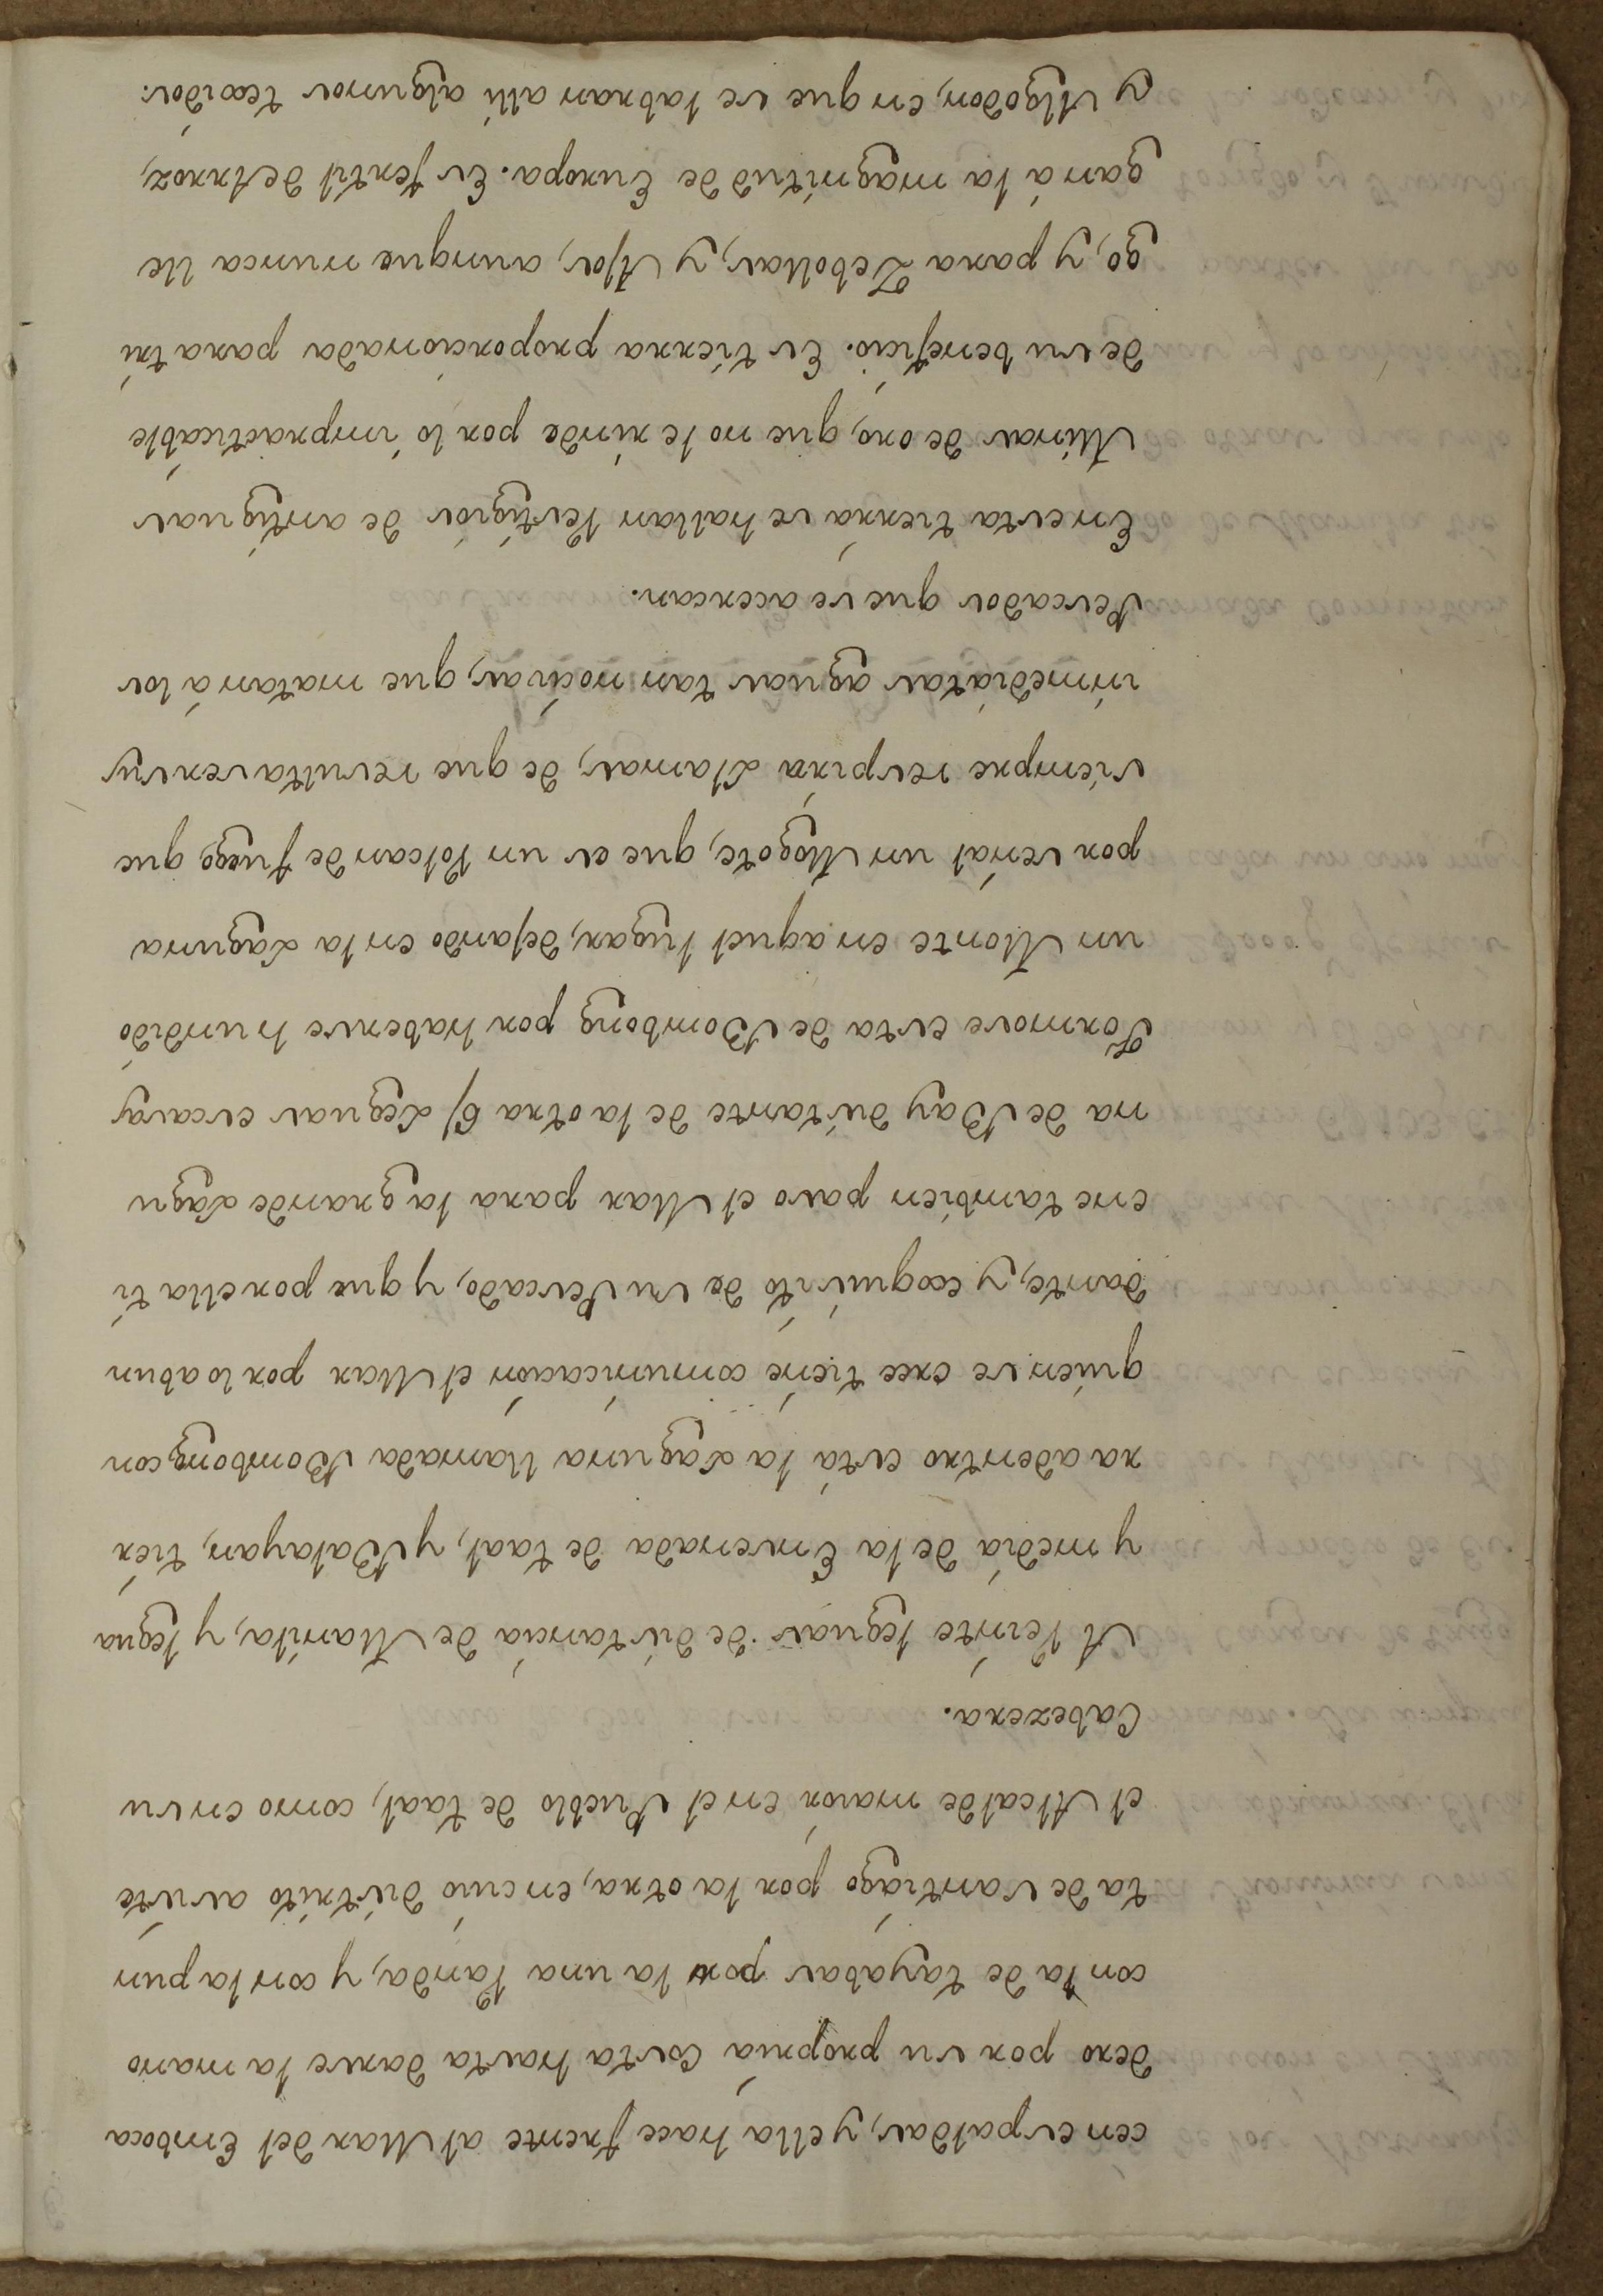 cen espaldas, y ella hace frente al Mar del Emboca
dero por su propria Costa hasta darse la mano
con la de tayabas por la una Vanda, y con la pun
ta de Santiago por la otra, en cuio distrito asiste
el Alcalde maior en el Pueblo de taal, como en su
Cabezera.
A Veinte leguas de distancia de Manila, y legua
y media de la Ensenada de taal, y Balayan, tier
ra adentro está la Laguna llamada Bombong con
quien se cree tiene comunicacion el Mar por lo abun
dante, y exquisito de su Pescado, y que por ella ti
ene tambien paso el Mar para la grande Lagu
na de Bay distante de la otra 6/ Leguas escasas
Formose esta de Bombong por haberse hundido
un Monte en aquel lugar, dejando en la Laguna
por señal un Mogote, que es un Volcan de fuego que
siempre respira Llamas, de que resulta ser sus
inmediatas aguas tan nocivas, que matan á los
Pescados que se acercan.
En esta tierra se hallan Vestigios de antiguas
Minas de oro, que no le rinde por lo impracticable
de su beneficio. Es tierra proporcionada para tri
go, y para Zebollas, y Ajos, aunque nunca lle
gan á la magnitud de Europa. Es fertil de Arroz,
y Algodon, en que se labran alli algunos texidos.